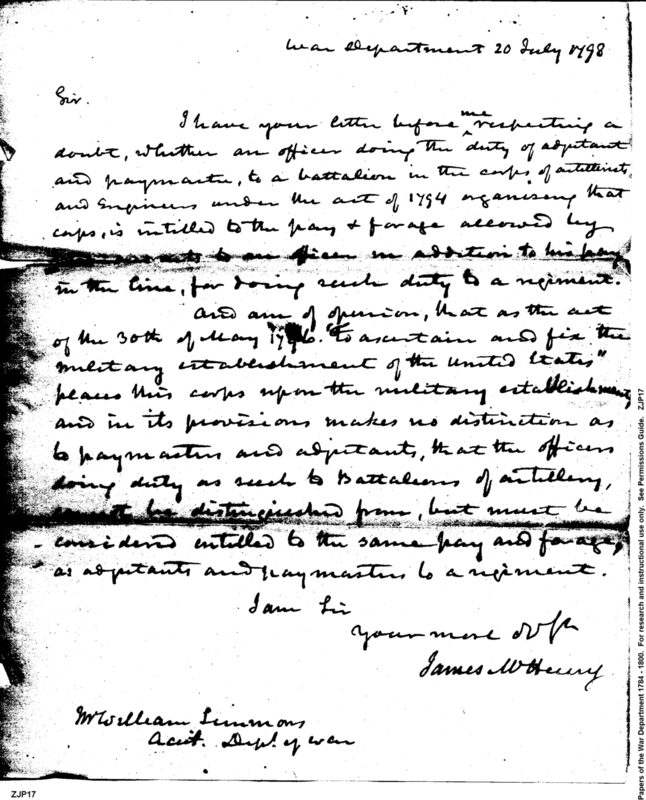 War Department 20 July 1798
Sir.
I have your letter before me respecting a
doubt, whether an officer doing the duty of adjutant
and paymaster, to a battalion in the corps of artillerists
and Engineers under the act of 1794 organising that
corps, is intitled to the pay & forage allowed by
to an officer in addition to his pay
in the line, for doing such duty to a regiment.
And am of opinion, that as the act
of the 30th of May 1796. "to ascertain and fix the
military establishment of the United States"
places this corps upon the military establishment,
and in its provisions makes no distinction as
to paymasters and adjutants, that the officers
doing duty as such to Battalions of artillery,
cannot be distinguished from, but must be
considered intitled to the same pay and forage,
as adjutants and paymasters to a regiment.
I am Sir
your most
James McHenry
Mr William Simmons
Acct. Dept. of war
ZJP17
Papers of the War Department 1784 - 1800. For research and instructional use only. See Permissions Guide. ZJP17